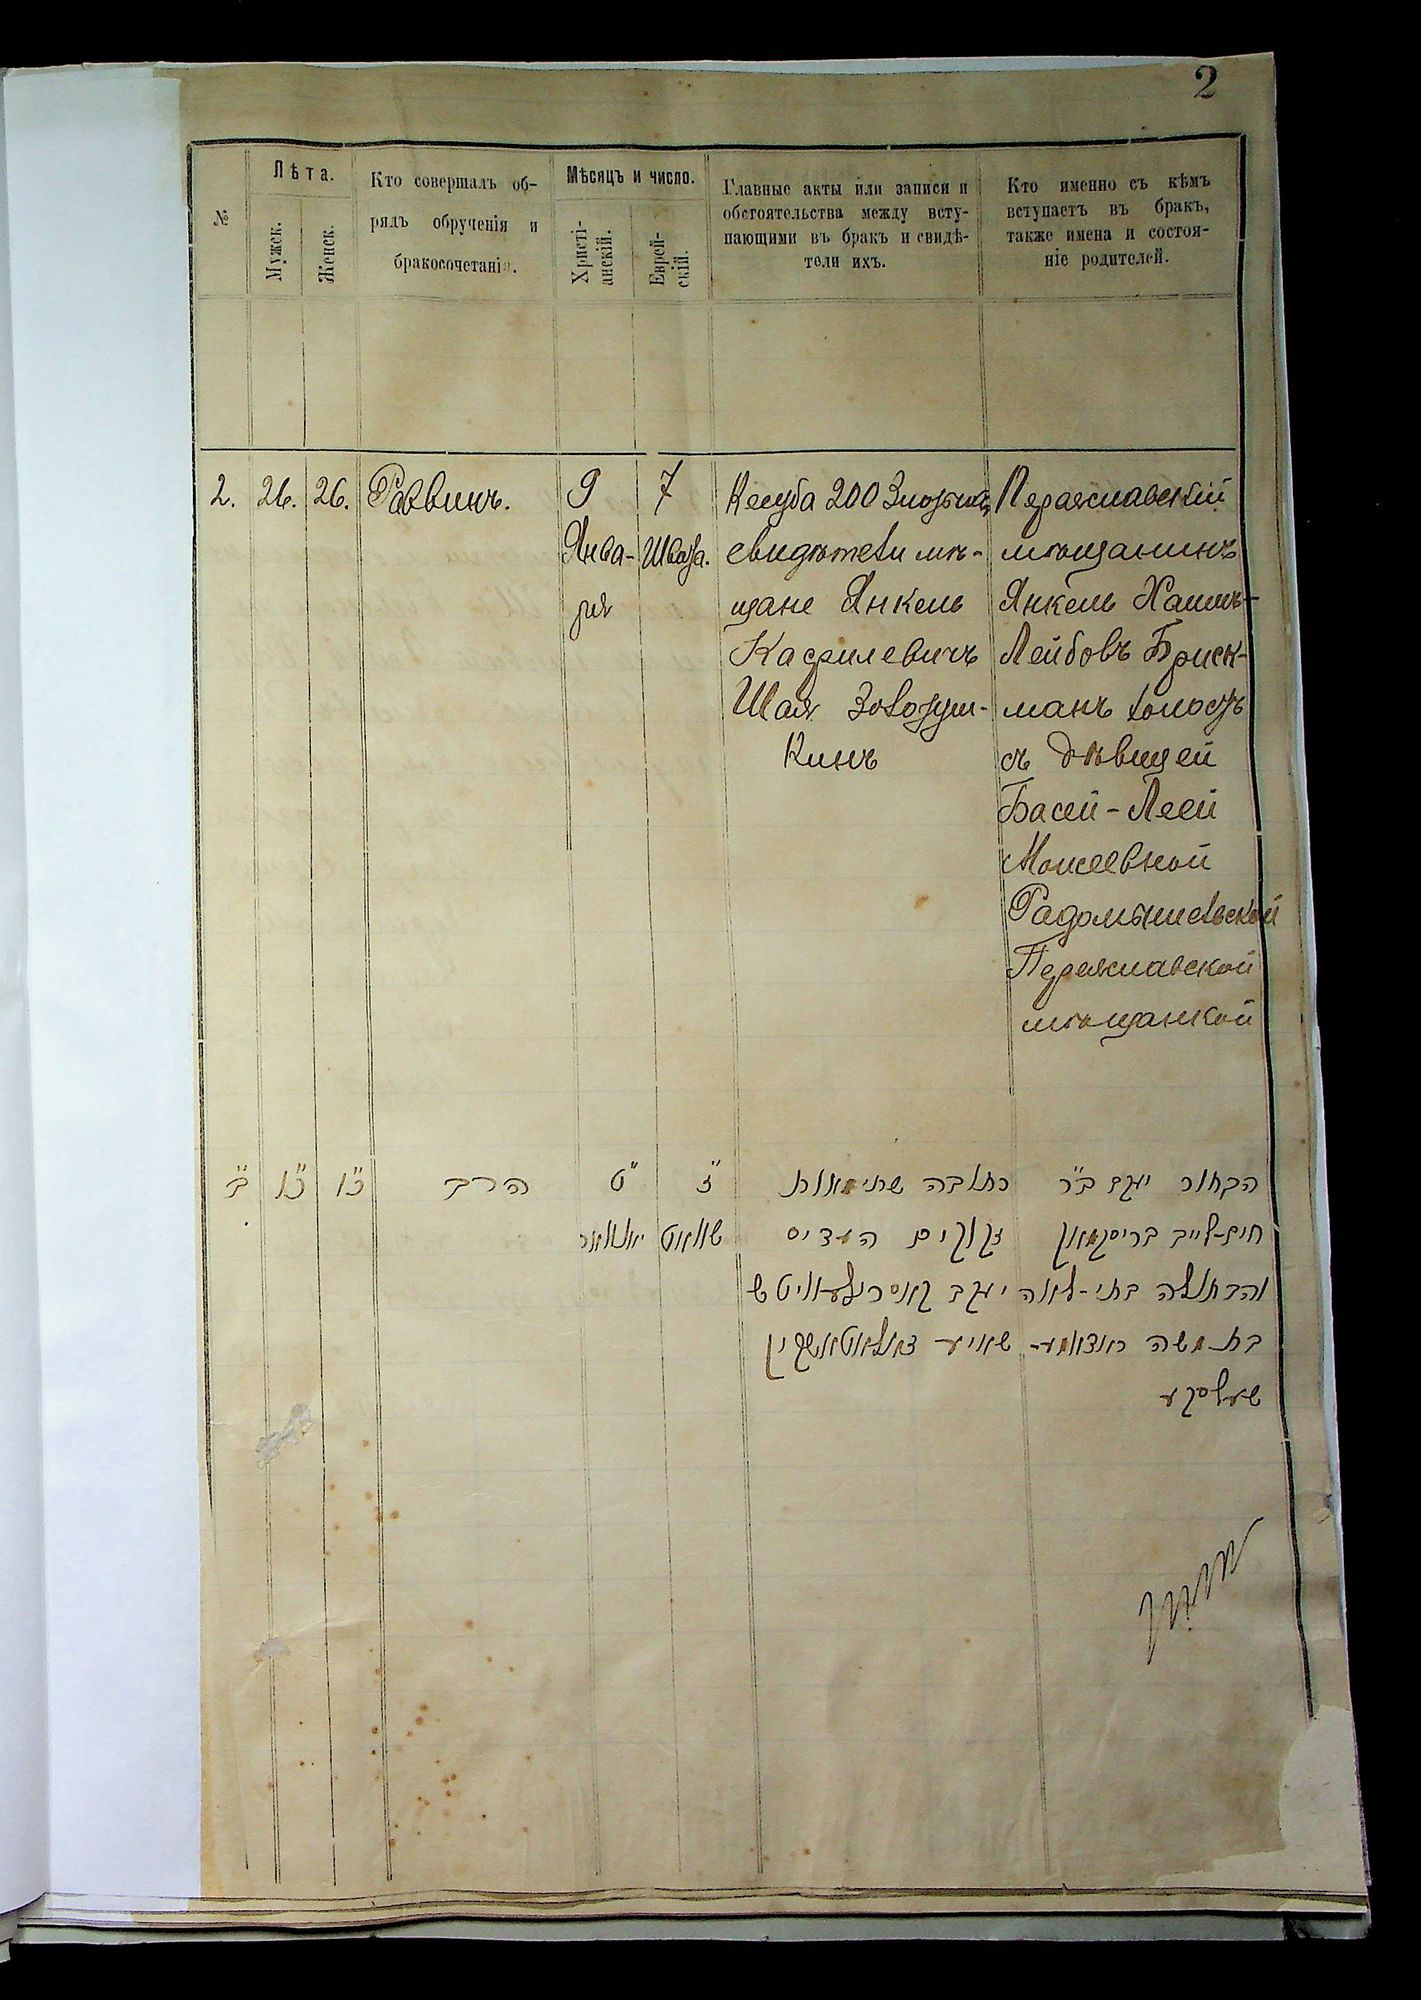 2
№
Лѣта.
Мужск.
Женск.
Кто совершалъ об-
рядъ обрученія и
бракосочетанія.
Мѣсяцъ и число.
Христі-
анскій.
Еврей-
скій.
Главные акты или записи и
обстоятельства между всту-
пающими въ бракъ и свидѣ-
тели ихъ.
Кто именно съ кѣмъ
вступаетъ въ бракъ,
также имена и состоя-
ніе родителей.
2.
26.
26.
Раввинъ.
9
Янва-
ря
7
Швата.
Кесуба 200 Злотыхъ,
свидѣтели мѣ-
щане Янкель
Касрилевичъ
Шая
кинъ
Переяславскій
мѣщанинъ
Янкель Хаимъ-
Лейбовъ Бриск-
манъ холостъ
съ дѣвицей
Басей-Леей
Моисеевной
Радомышельской
Переяславской
мѣщанкой
ב״
כ״ו
כ״ו
הרב
ט״
יאנואר
ז״
שוואט
כתובה שתי מאות
זקוקים העדים
יעקב קאסרילעוויטש
שאיע
הבחור יעקב ב״ר
חיים-לייב בריסקמאן
והבתולה בתי-לאה
בת משה ראדאמע-
שעלסקע